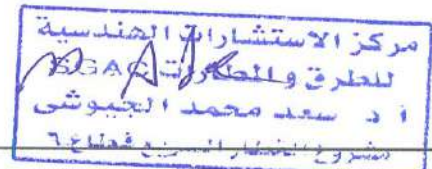 مركز الاستشارات الهندسية
للطرق و المطارات SGAC
ا د سعد محمد الجيوشى
مشروع القطار السريع قطاع ٦